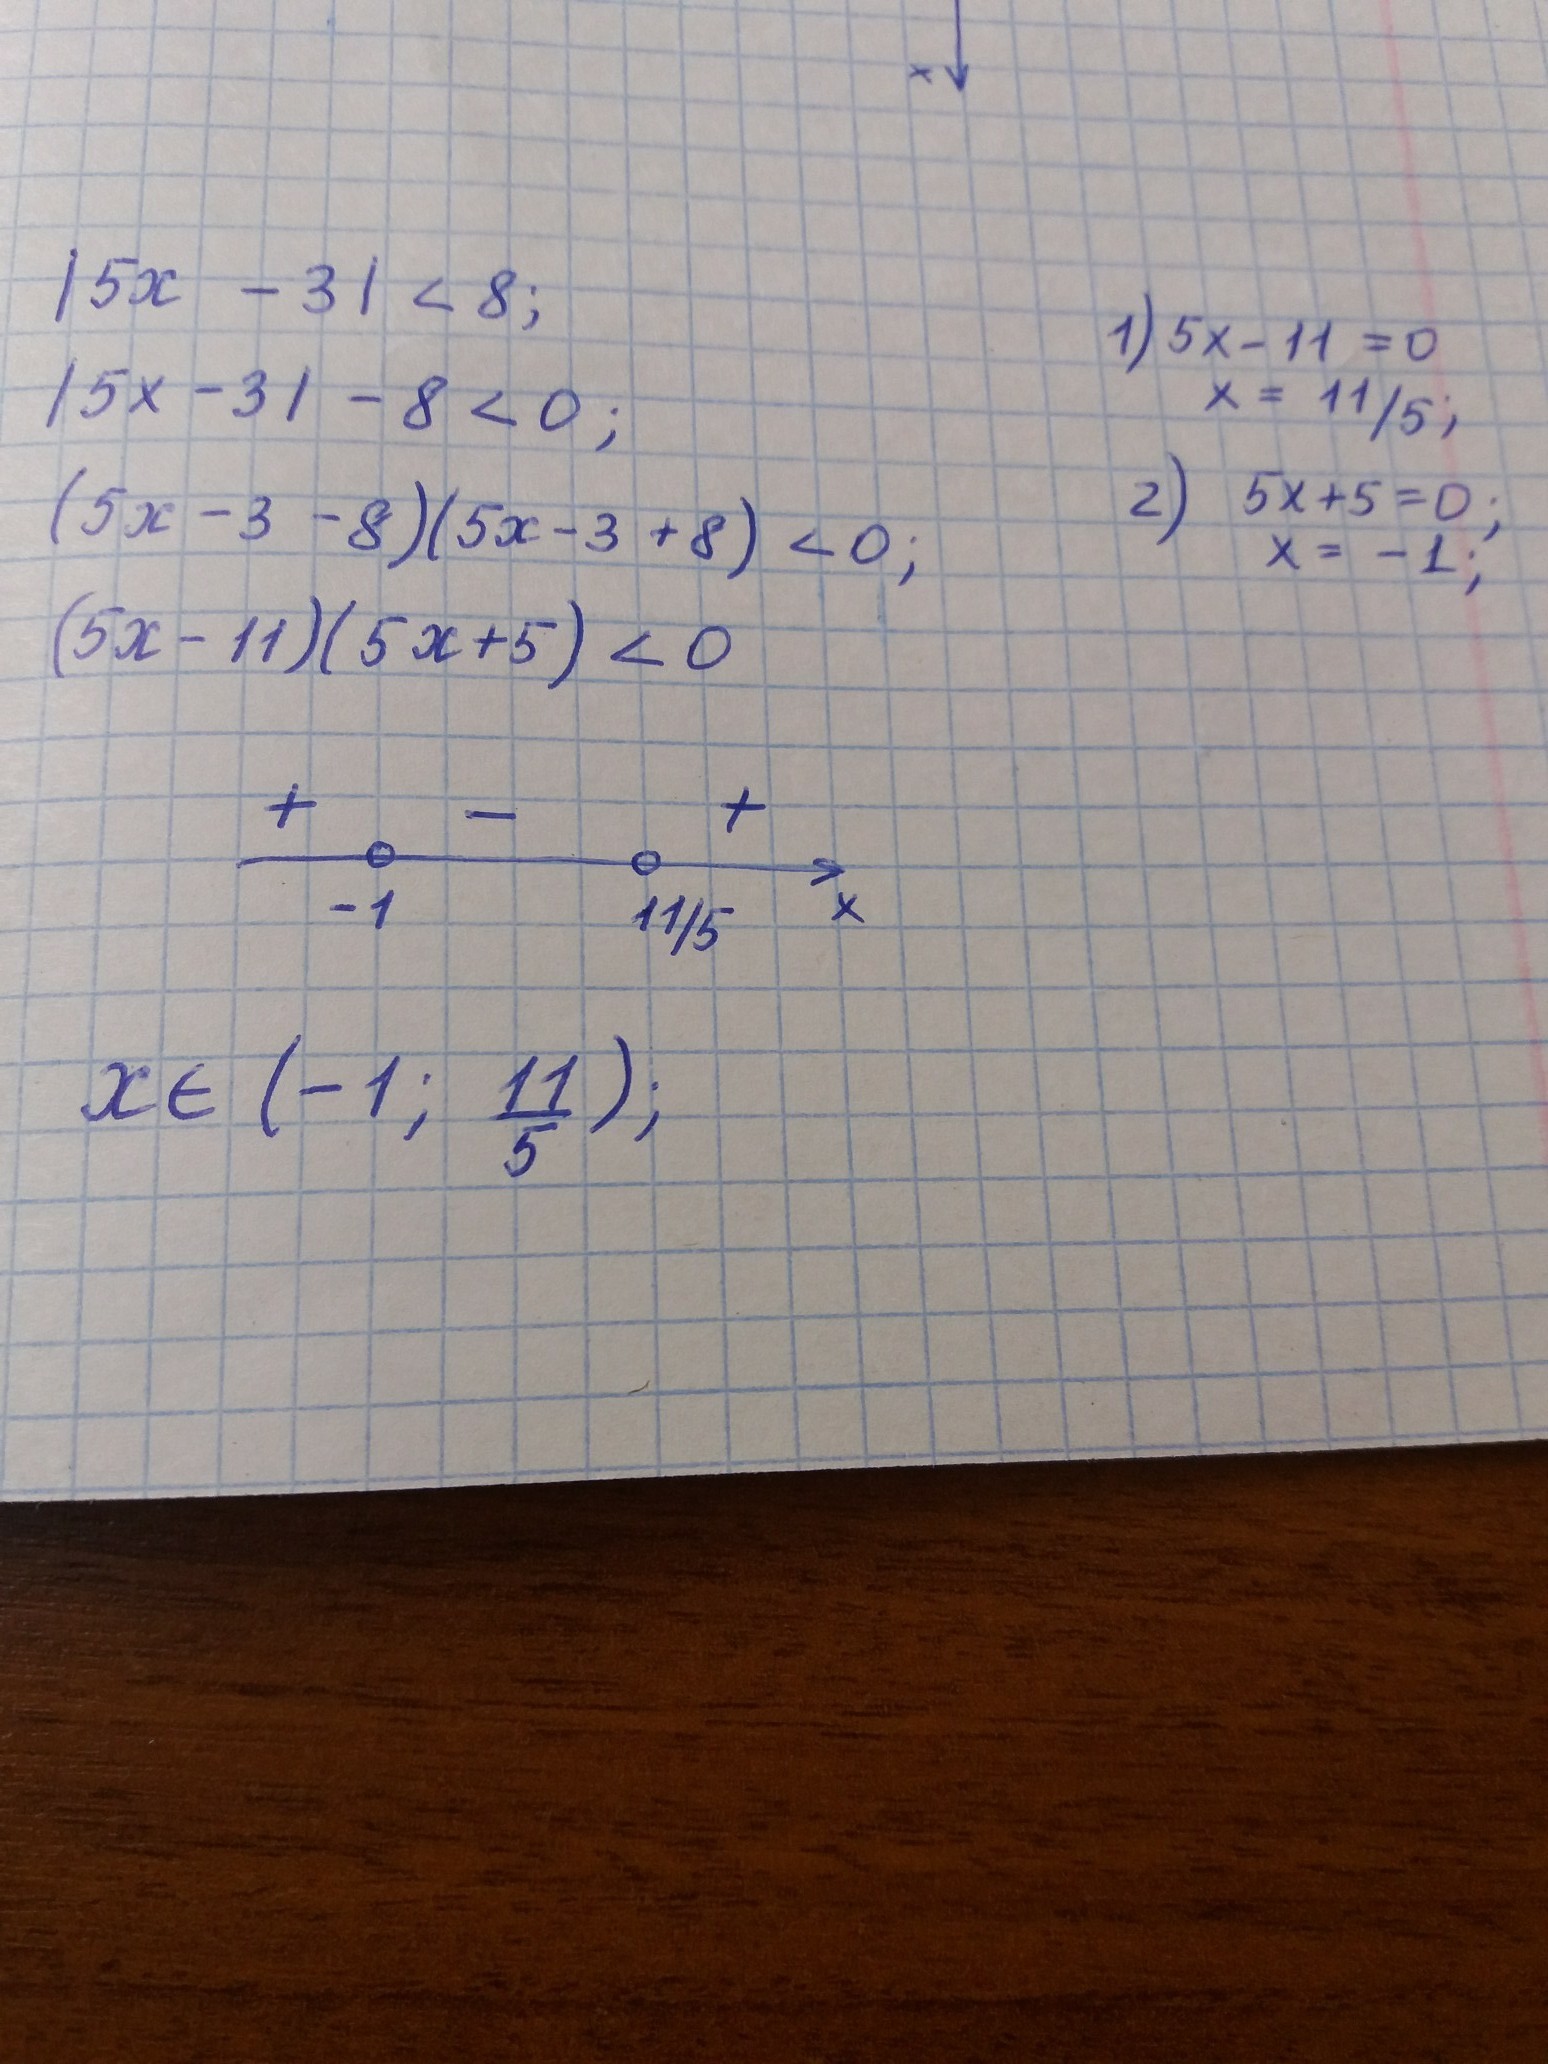 x
|5x - 3| < 8;
|5x - 3| - 8 < 0;
(5x - 3 - 8)(5x - 3 + 8) < 0;
(5x - 11)(5x + 5) < 0
1) 5x - 11 = 0
x = 11/5;
2) 5x + 5 = 0;
x = -1;
+ - +
-1 11/5 x
x ∈ (-1; 11/5);